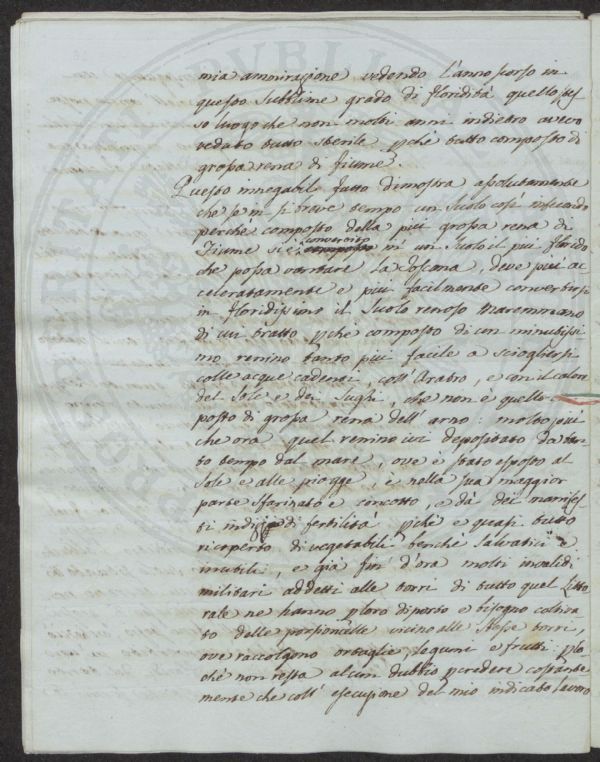 mia amirazione vedendo l'anno scorso in
questo sublime grado di floridità quello stes-
so luogo che non molti anni indietro avevo
vedato tutto sterile pchè tutto composto di
grossa rena di fiume.
Questo innegabile fatto dimostra assolutamente
che se in si breve tempo un suolo così infecondo
perchè composto della più grossa rena di
Fiume si è convertito in un suolo il più florido
che possa vantare la Toscana, deve più ac-
celeratamente e più facilmente convertirsi
in floridissimo il suolo renoso Maremmano
di cui tratto pchè composto di un minutissi-
mo renino tanto più facile a sciogliersi
colle acque cadenti, coll'Aratro, e con il calore
del Sole e dei sughi, che non è quello
posto di grossa rena dell'arno: molto più
che ora quel renino ivi depositato da tan-
to tempo dal mare, ove è stato esposto al
Sole e alle piogge, e nella sua maggior
parte sfarinato e concotto, e dà dei manifes-
ti indizj di fertilità pchè è quasi tutto
ricoperto di vegetabili benchè salvatici e
inutili, e già fin d'ora molti invalidi
militari addetti alle torri di tutto quel Litto-
rale ne hanno p loro diporto e bisogno coltiva-
to delle porzioncelle vicino alle stesse torri,
ove raccolgono ortaglie, legumi e frutti p lo
chè non resta alcun dubbio p credere costante-
mente che coll'esecuzione del mio indicato lavoro